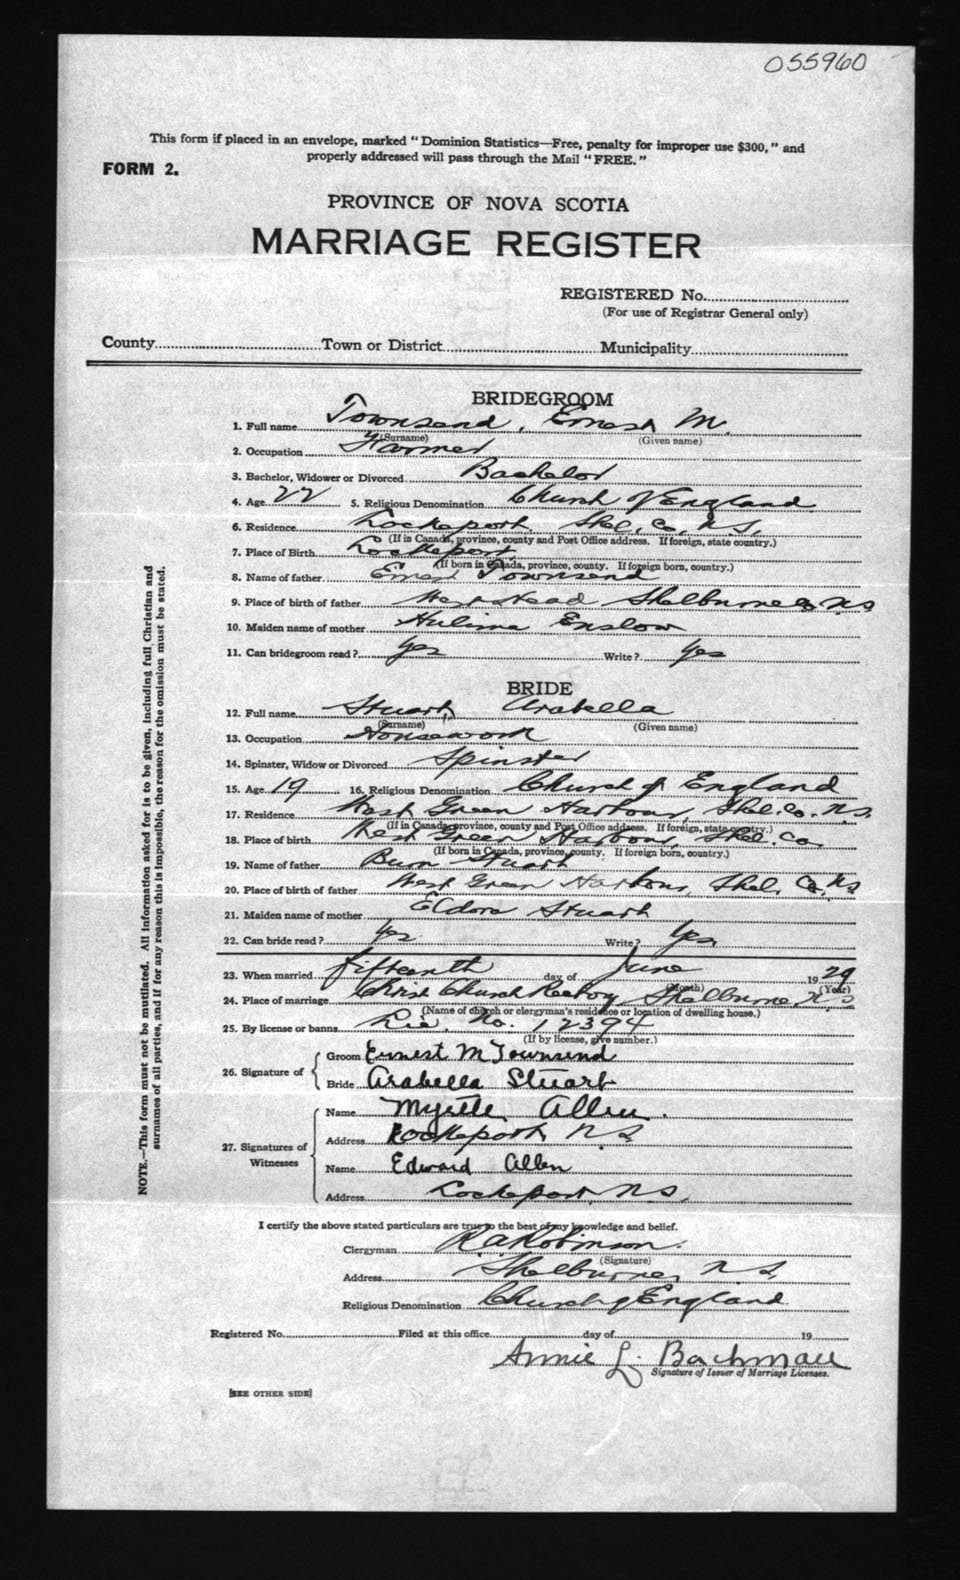 055960
This form if placed in an envelope, marked "Dominion Statistics—Free, penalty for improper use $300," and
properly addressed will pass through the Mail "FREE."
FORM 2.
PROVINCE OF NOVA SCOTIA
MARRIAGE REGISTER
REGISTERED No.
(For use of Registrar General only)
County Town or District Municipality
BRIDEGROOM
1. Full name Townsend, Ernest M.
(Surname) (Given name)
2. Occupation Farmer
3. Bachelor, Widower or Divorced Bachelor
4. Age 22 5. Religious Denomination Church of England
6. Residence Lockeport Shel. Co. N.S.
(If in Canada, province, county and Post Office address. If foreign, state country.)
7. Place of Birth Lockeport
(If born in Canada, province, county. If foreign born, country.)
8. Name of father Ernest Townsend
9. Place of birth of father West Head Shelburne Co NS
10. Maiden name of mother Enslow
11. Can bridegroom read? Yes Write? Yes
BRIDE
12. Full name Stuart, Arabella
(Surname) (Given name)
13. Occupation Housework
14. Spinster, Widow or Divorced Spinster
15. Age 19 16. Religious Denomination Church of England
17. Residence West Green Harbour, Shel. Co. N.S.
(If in Canada, province, county and Post Office address. If foreign, state country.)
18. Place of birth West Green Harbour, Shel. Co.
(If born in Canada, province, county. If foreign born, country.)
19. Name of father Burn Stuart
20. Place of birth of father West Green Harbour, Shel. Co. NS
21. Maiden name of mother Eldora Stuart
22. Can bride read? Yes Write? Yes
23. When married fifteenth day of June 1929
(Month) (Year)
24. Place of marriage Christ Church Rectory Shelburne, N S
(Name of church or clergyman's residence or location of dwelling house.)
25. By license or banns Lic. No. 12394
(If by license, give number.)
26. Signature of
Groom Ernest M Townsend
Bride Arabella Stuart
27. Signatures of Witnesses
Name Myrtle Allen.
Address Lockeport N S
Name Edward Allen
Address Lockeport, N S.
I certify the above stated particulars are true to the best of my knowledge and belief.
Clergyman R A Robinson.
(Signature)
Address Shelburne, N S,
Religious Denomination Church of England
Registered No. Filed at this office day of 19
Annie L. Bachman
Signature of Issuer of Marriage Licenses.
[SEE OTHER SIDE]
NOTE.—This form must not be mutilated. All information asked for is to be given, including full Christian and
surnames of all parties, and if for any reason this is impossible, the reason for the omission must be stated.